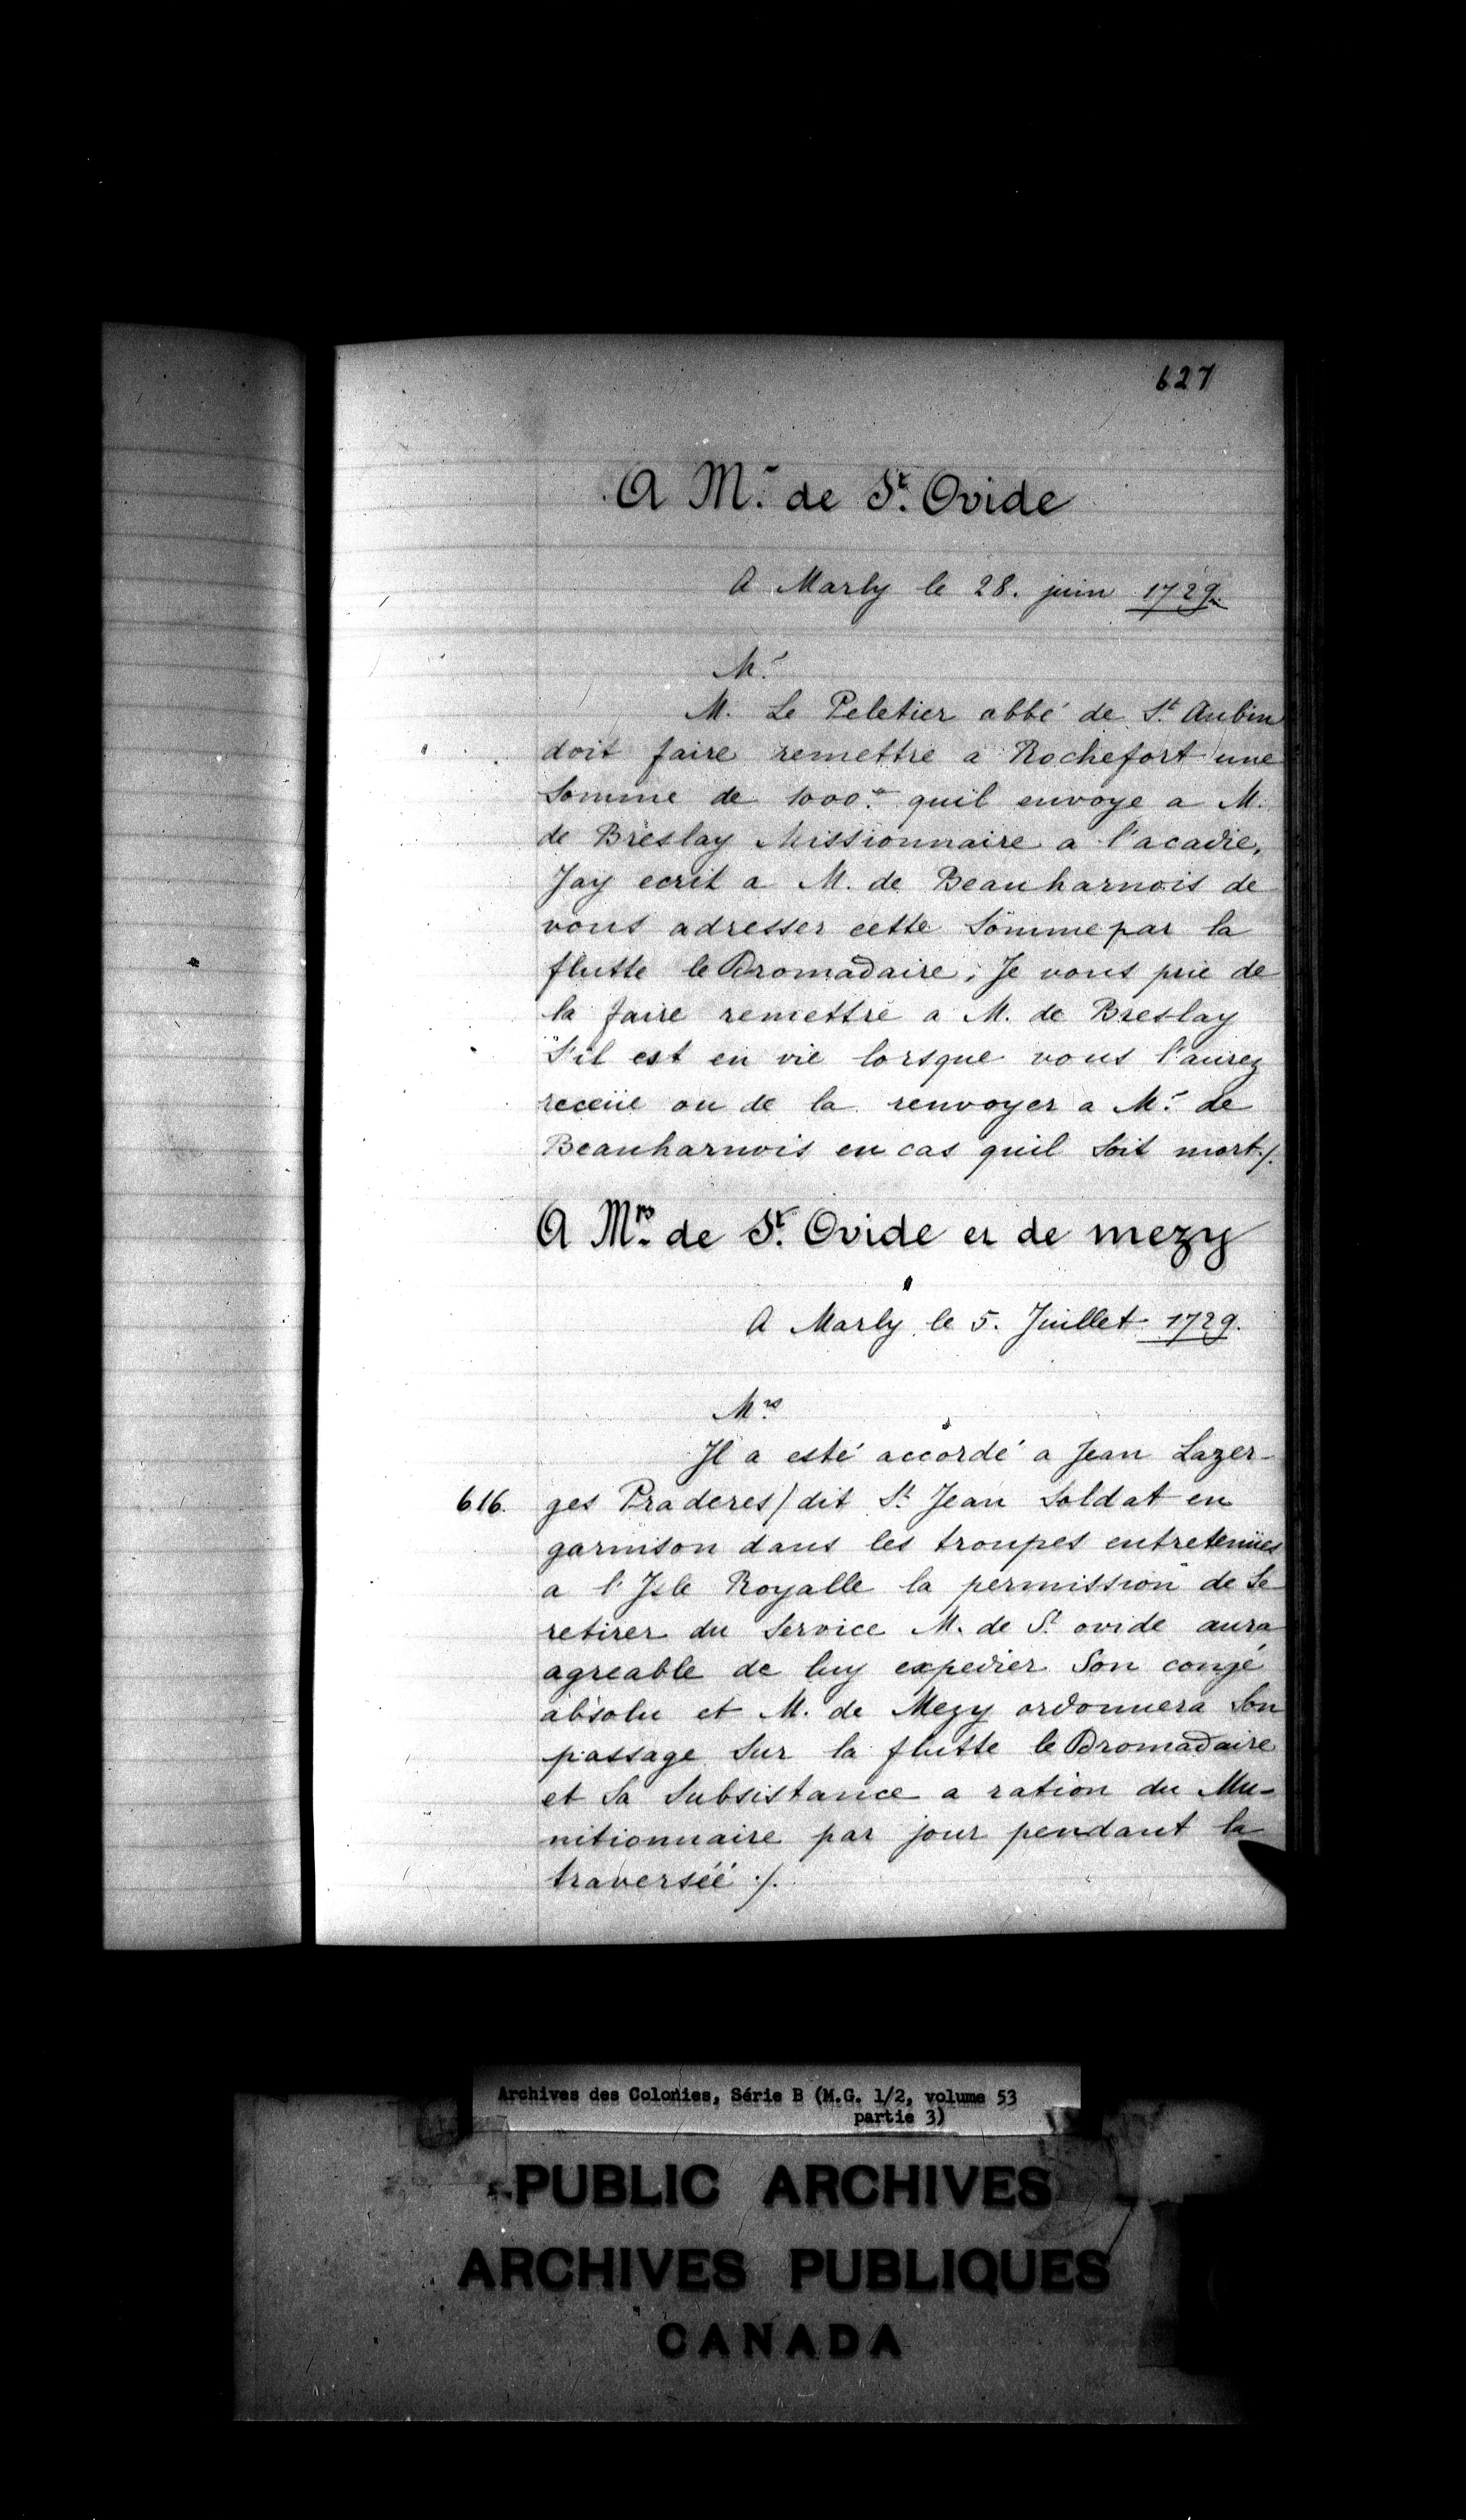 627
A Mr. de St. Ovide
A Marly le 28. juin 1729.
Mr.
M. Le Peletier abbé de St Aubin
doit faire remettre a Rochefort une
Somme de 1000.# quil envoye a M.
de Breslay Missionnaire a l'acadie.
Jay ecrit a M. de Beauharnois de
vous adresser cette Somme par la
flutte le Dromadaire; Je vous prie de
la faire remettre a M. de Breslay
S'il est en vie lorsque vous l'aurez
receüe ou de la renvoyer a Mr. de
Beauharnois en cas quil Soit mort./.
A Mrs. de St. Ovide et de mezy
A Marly le 5. Juillet 1729.
Mrs.
Il a esté accordé a Jean Lazer-
616. ges Praderes/dit St Jean Soldat en
garnison dans les troupes entretenües
a l'Isle Royalle la permission de Se
retirer du Service M. de St. ovide aura
agreable de luy expedier Son congé
absolu et M. de Mezy ordonnera Son
passage Sur la flutte le Dromadaire
et Sa Subsistance a ration du Mu-
nitionnaire par jour pendant la
traverséé ./.
Archives des Colonies, Série B (M.G. 1/2, volume 53
partie 3)
PUBLIC ARCHIVES
ARCHIVES PUBLIQUES
CANADA